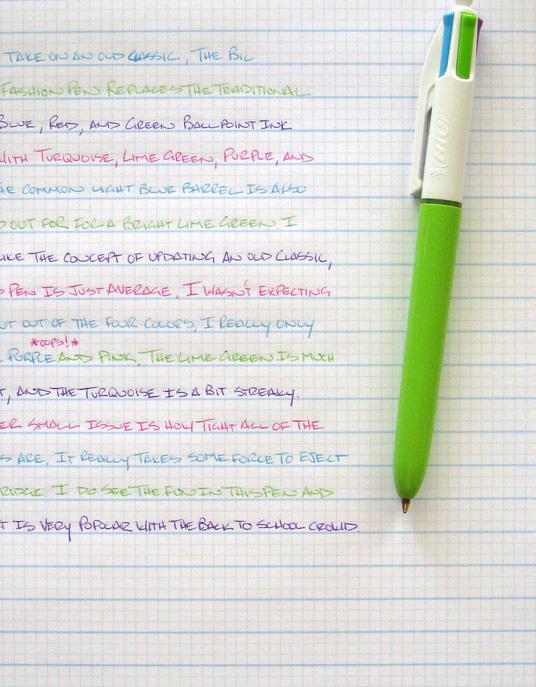 TAKE ON AN OLD CLASSIC, THE BIC
FASHION PEN REPLACES THE TRADITIONAL
BLUE, RED, AND GREEN BALLPOINT INK
WITH TURQUOISE, LIME GREEN, PURPLE, AND
HE COMMON LIGHT BLUE BARREL IS ALSO
D OUT FOR FOR A BRIGHT LIME GREEN I
IKE THE CONCEPT OF UPDATING AN OLD CLASSIC,
PEN IS JUST AVERAGE. I WASN'T EXPECTING
UT OUT OF THE FOUR COLORS, I REALLY ONLY
*OOPS!*
PURPLE AND PINK. THE LIME GREEN IS MUCH
T, AND THE TURQUOISE IS A BIT STREAKY.
ER SMALL ISSUE IS HOW TIGHT ALL OF THE
S ARE. IT REALLY TAKES SOME FORCE TO EJECT
RIDGE. I DO SEE THE FUN IN THIS PEN AND
T IS VERY POPULAR WITH THE BACK TO SCHOOL CROWD.
BIC